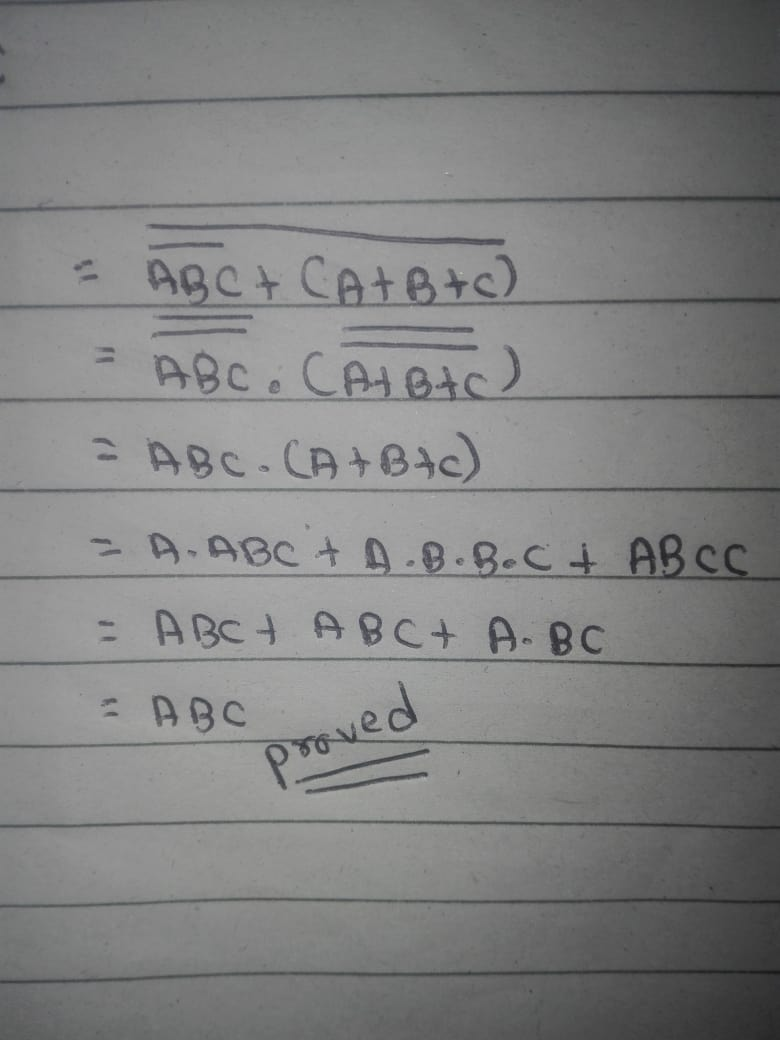 = \overline{\overline{ABC} + (A+B+C)}
= \overline{\overline{ABC}} . (\overline{\overline{A+B+C}})
= ABC . (A+B+C)
= A.ABC + A.B.B.C + ABCC
= ABC + ABC + A.BC
= ABC
proved